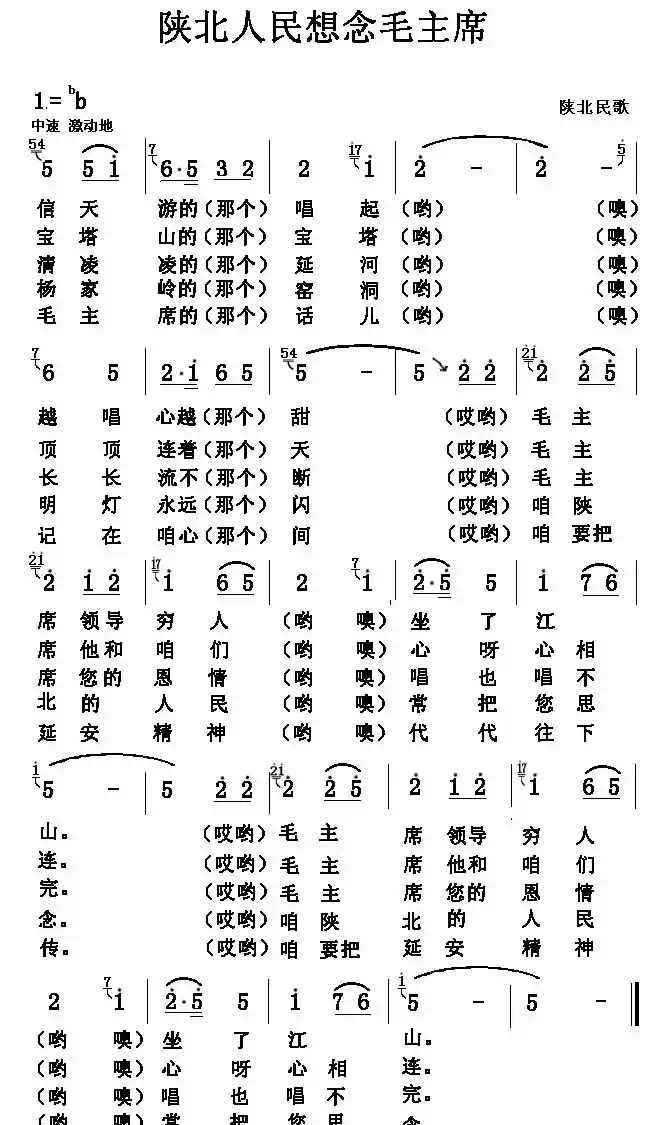 陕北人民想念毛主席
1.= ᵇb
陕北民歌
中速 激动地
54 5 5 1 | 7 6·5 3 2 | 2 17 1 | 2 - | 2 - 5 |
信 天 游的（那个） 唱 起（哟） （噢）
宝 塔 山的（那个） 宝 塔（哟） （噢）
清 凌 凌的（那个） 延 河（哟） （噢）
杨 家 岭的（那个） 窑 洞（哟） （噢）
毛 主 席的（那个） 话 儿（哟） （噢）
7 6 5 | 2·1 6 5 | 54 5 - | 5 2 2 | 21 2 2 5 |
越 唱 心越（那个） 甜 （哎哟） 毛 主
顶 顶 连着（那个） 天 （哎哟） 毛 主
长 长 流不（那个） 断 （哎哟） 毛 主
明 灯 永远（那个） 闪 （哎哟） 咱 陕
记 在 咱心（那个） 间 （哎哟） 咱 要把
21 2 1 2 | 17 1 6 5 | 2 7 1 | 2·5 5 | 1 7 6 |
席 领导 穷 人 （哟 噢） 坐 了 江
席 他和 咱 们 （哟 噢） 心 呀 心 相
席 您的 恩 情 （哟 噢） 唱 也 唱 不
北 的 人 民 （哟 噢） 常 把 您 思
延 安 精 神 （哟 噢） 代 代 往 下
1 5 - | 5 2 2 | 21 2 2 5 | 2 1 2 | 17 1 6 5 |
山。 （哎哟） 毛 主 席 领导 穷 人
连。 （哎哟） 毛 主 席 他和 咱 们
完。 （哎哟） 毛 主 席 您的 恩 情
念。 （哎哟） 咱 陕 北 的 人 民
传。 （哎哟） 咱 要把 延 安 精 神
2 7 1 | 2·5 5 | 1 7 6 | 1 5 - | 5 - ‖
（哟 噢） 坐 了 江 山。
（哟 噢） 心 呀 心 相 连。
（哟 噢） 唱 也 唱 不 完。
（哟 噢） 常 把 您 思 念